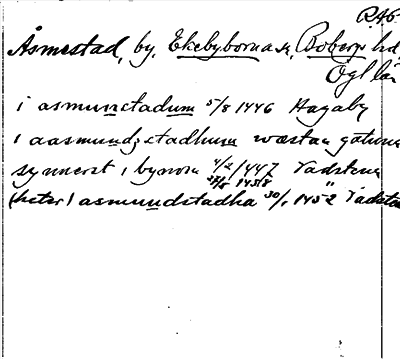 RAB
Åsmestad, by, Ekebyborna sn, Bobergs hd,
Ögl län
i asmunstadum 5/8 1446 Hagaby
i aasmundzstadhum wæstan gatuna
synnerst i bynom 4/2 1447 Vadstena
27/5 1458 "
(heter) asmundstadha 30/1 1452 Vadste